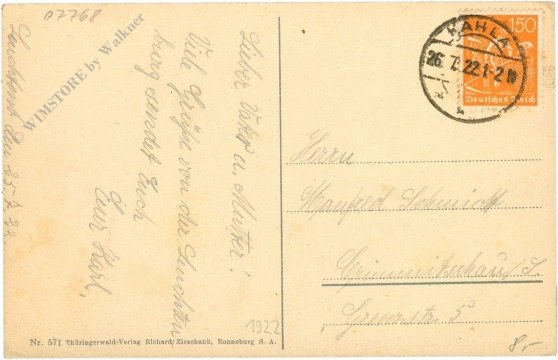 07768
WIMSTORE by Walkner
Leuchtenburg den 25. 7. 22.
Lieber Vater u. Mutter!
Viele Grüße von der Leuchten
burg sendet Euch
Euer Karl.
KAHLA
26. 7. 22. 1-2 N
150
Deutsches Reich
Herrn
Manfred Schmidt
Crimmitschau i/S.
5
1922
8,-
Nr. 571 Thüringerwald-Verlag Richard Zieschank, Ronneburg S. A.